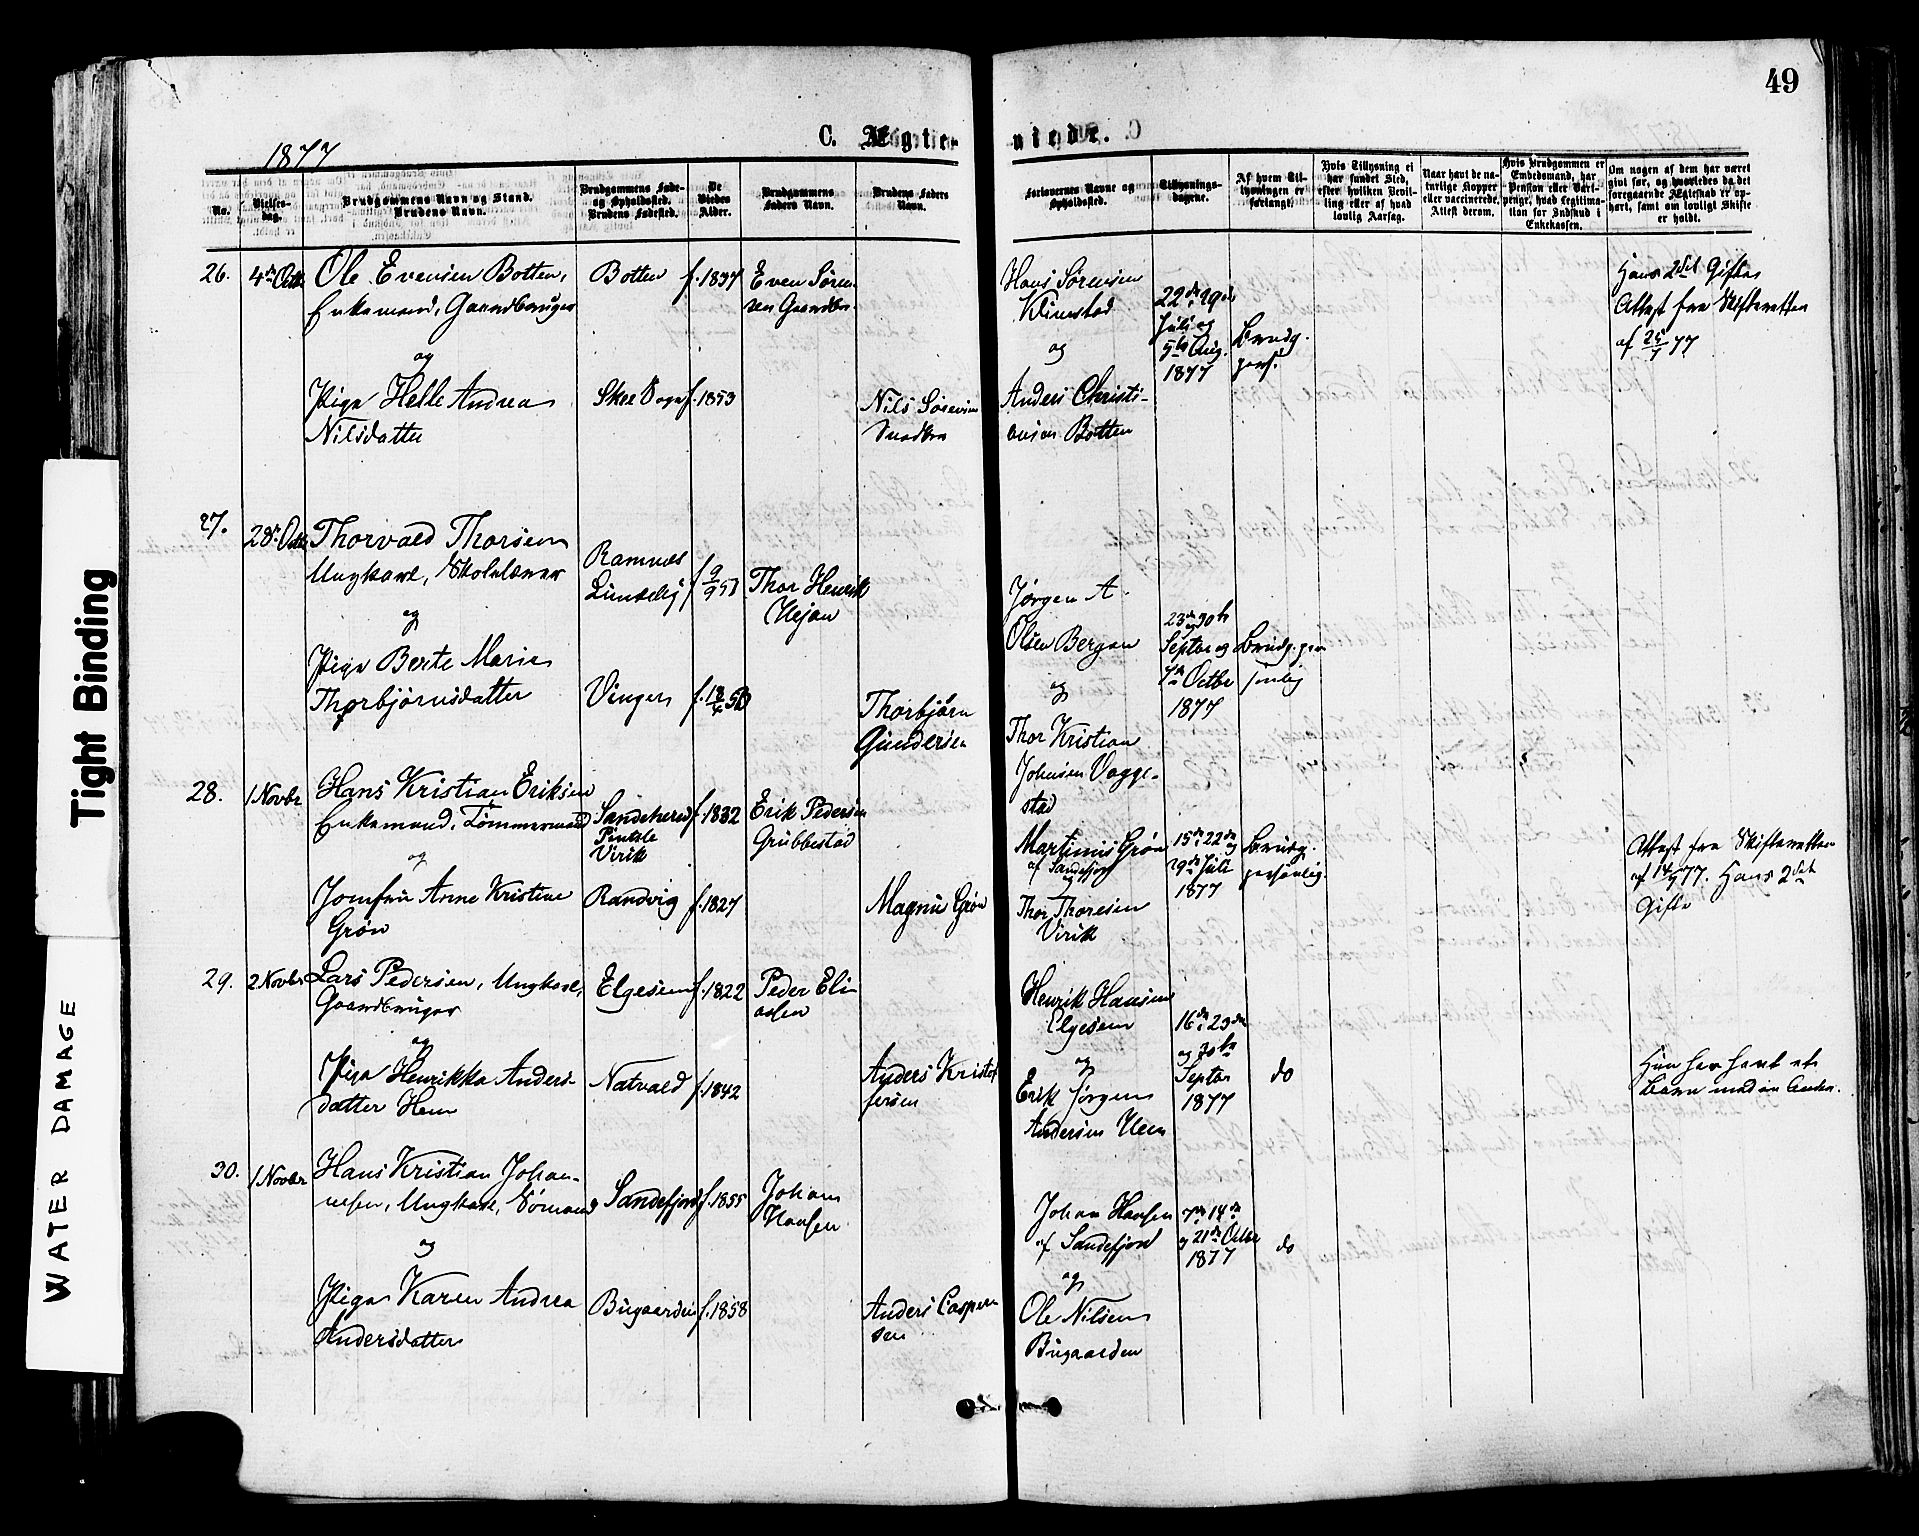 49
C. Ægte-
viede.
1877
No.
Vielses-
dag.
Brudgommens Navn og Stand.
Brudens Navn.
Brudgommens Føde-
og Opholdssted.
Brudens Fødested.
De
Viedes
Alder.
Brudgommens
Faders Navn.
Brudens Faders
Navn.
Forlovernes Navne og
Opholdssted.
Tillysnings-
dagene.
Af hvem Til-
lysningen er
forlangt.
Hvis Tillysning ei
har fundet Sted,
efter hvilken Bevil-
ling eller af hvad
lovlig Aarsag.
Naar havt de na-
turlige Kopper
eller vaccinerede,
Attest derom.
Hvis Brudgommen er
Embedsmand, har
Pension eller Vart-
penge, hvad Legitima-
tion for Indskud i
Enkekassen.
Om nogen af dem har været
gift før, og hvorledes da det
foregaaende Ægteskab er op-
hørt, samt om lovligt Skifte
er holdt.
26.
4de Octb
Ole Evensen Botten,
Enkemand, Gaardbruger
og
Pige Helle Andrea
Nilsdatter
Botten
f. 1837
Even Søren-
sen Gaardbr.
f. 1853
Nils
Hans Sørensen
Klinestad
og
Anders Christi-
ansen Botten
22de 29de
Juli og
5te Aug.
1877
Brudg.
pers.
Hans 2det Gifte
Attest fra Skifteretten
af 25/7 77
27.
28de Octb
Thorvald Thorsen
Ungkarl, Skolelærer
og
Pige Berte Marie
Thorbjørnsdatter
Ramnæs
Vinger
Thor Henrik
Thorbjørn
Gundersen
Jørgen A
Olsen Bergan
og
Thor Kristian
Johnsen Vagge-
stad
23de 30te
Septbr og
7de Octbr
1877
Brudg. per
sonlig
28.
1 Novbr
Hans Kristian Eriksen
Enkemand, Tømmermand
og
Jomfru Anne Kristine
Grøn
Sandeherred
Virik
Randvig
f. 1832
f. 1827
Erik Pedersen
Grubbestad
Magnus Grøn
Martinius Grøn
af Sandefjord
og
Thor Thoresen
Virik
15de 22de og
29de Juli
1877
Brudg.
personlig.
Attest fra Skifteretten
77. Hans 2det
Gifte
29.
2 Novbr
Lars Pedersen, Ungkarl,
Gaardbruger
og
Pige Henrikka Anders-
datter Hem
Elgesem
Natvald
f. 1822
f. 1842
Peder Eli-
assen
Anders Kristof
fersen
Henrik Hansen
Elgesem
og
Erik Jørgen
Andersen Hem
16de 23de
og 30te
Septbr
1877
do
Hun har havt et
Barn med en Anden.
30.
1 Novbr
Hans Kristian Johan-
nesen, Ungkarl, Sømand
og
Pige Karen Andrea
Andersdatter
Sandefjord
Bugaarden
f. 1855
f. 1858
Johan
Hansen
Anders Casper-
sen
Johan Hansen
af Sandefjord
og
Ole Nilsen
Bugaarden
7de 14de
og 21de Octbr
1877
do
Tight Binding
WATER DAMAGE